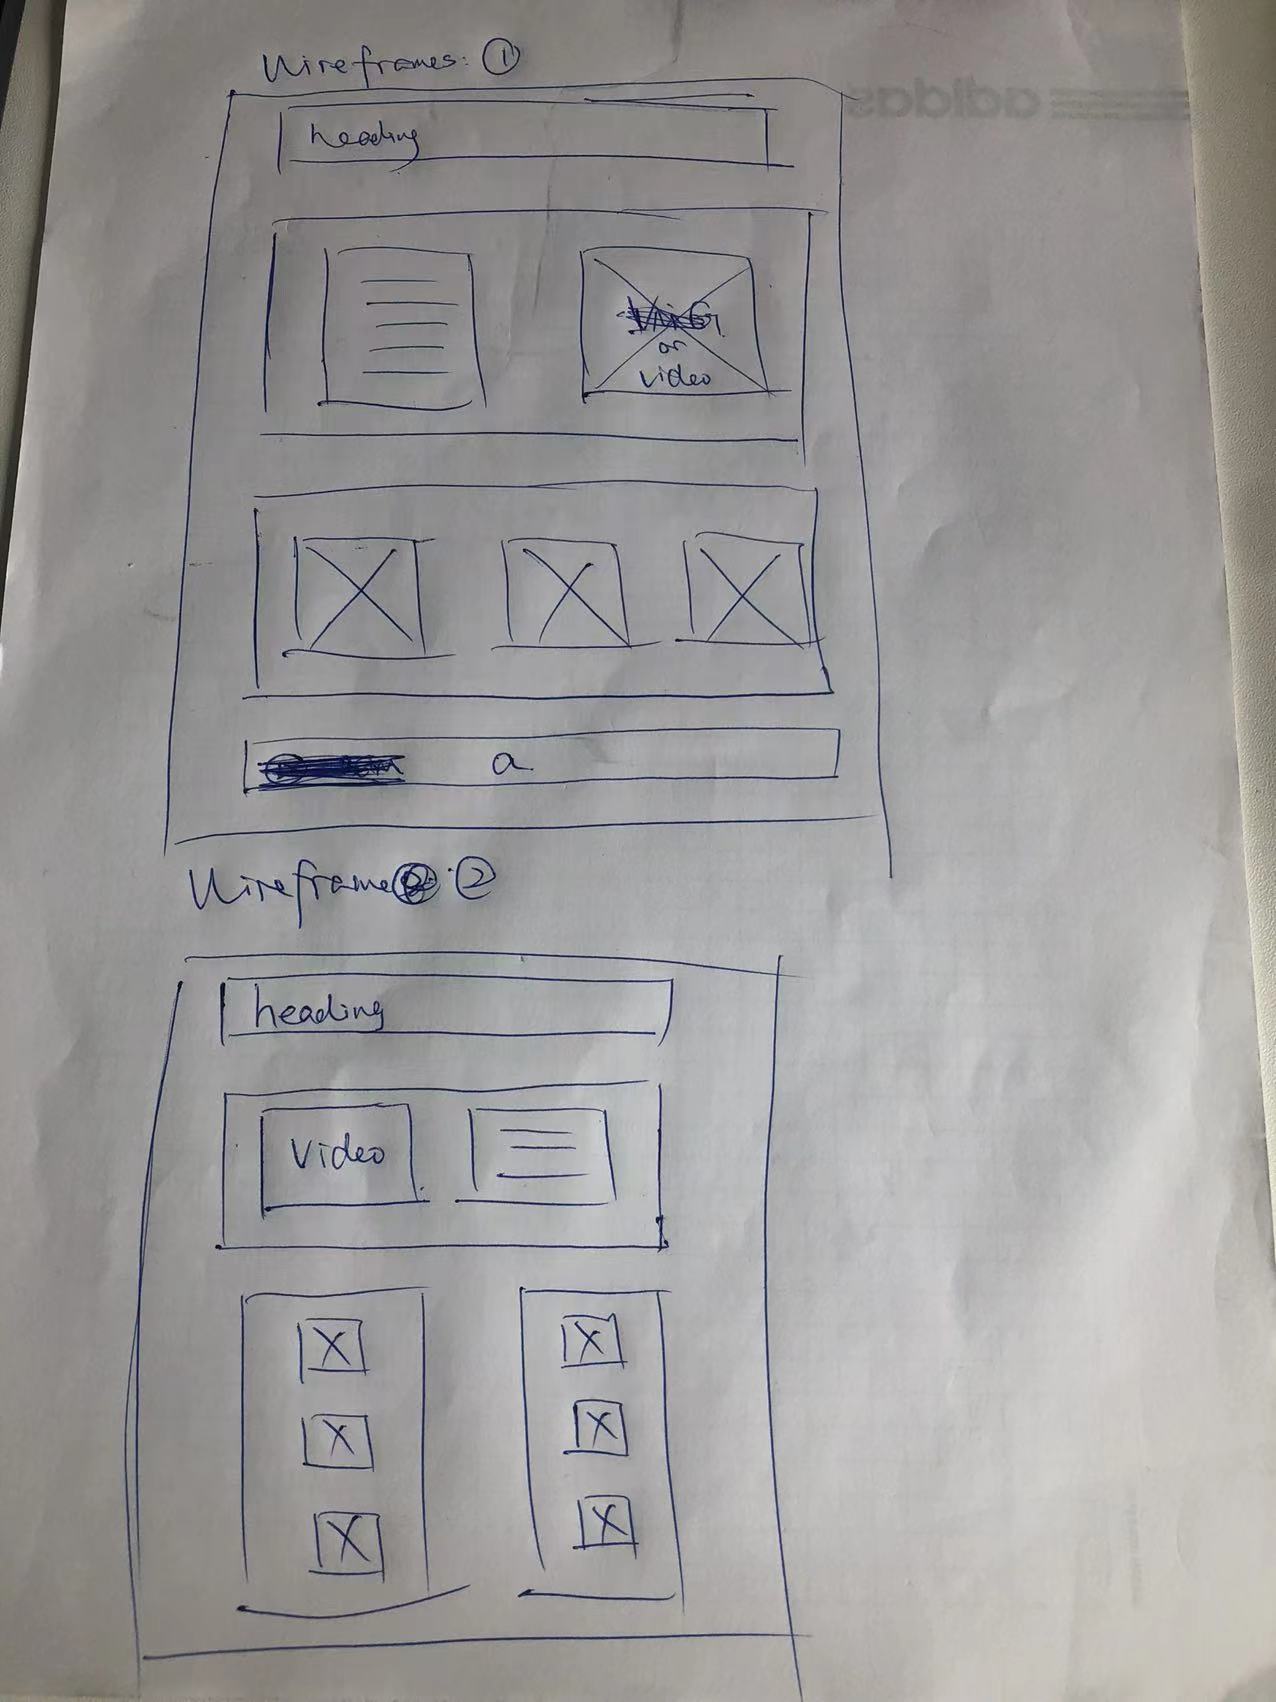 Wireframes: ①
adidas
heading
or
video
a
Wireframe : ②
heading
Video